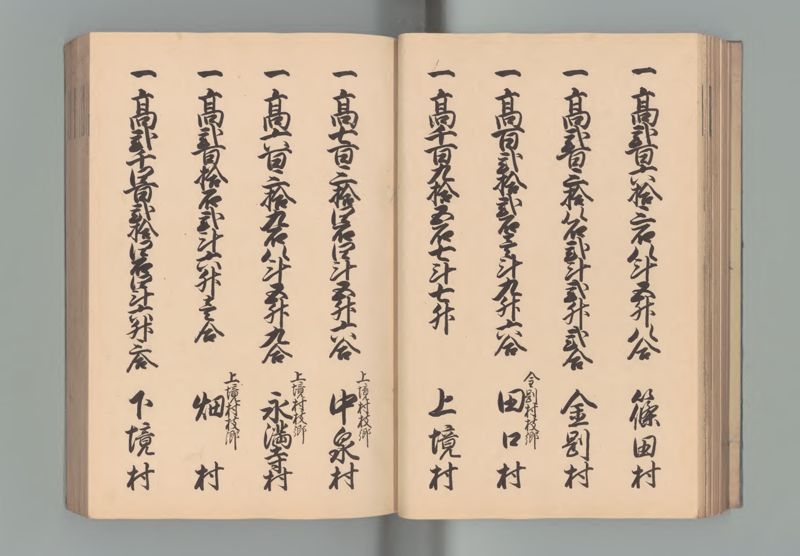 一 高弐百六拾三石八斗五升八合 篠田村
一 高弐百三拾八石弐斗弐升弐合 金剔村
一 高百弐拾弐石壱斗九升六合 金剔村枝郷 田口村
一 高千百九拾五石七斗七升 上境村
一 高七百三拾四石四斗五升六合 上境村枝郷 中泉村
一 高六百三拾九石八斗五升九合 上境村枝郷 永満寺村
一 高弐百拾石弐斗六升壱合 上境村枝郷 畑村
一 高弐千四百弐拾四石四斗六升三合 下境村